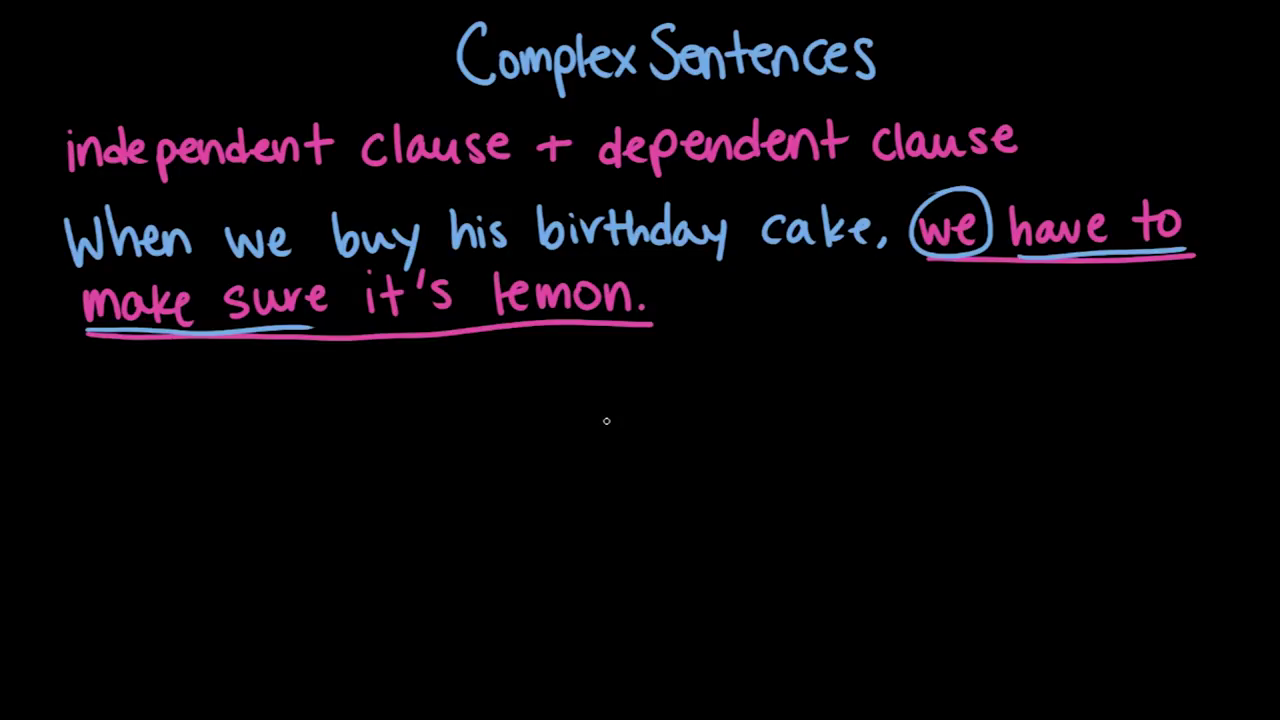 Complex Sentences
independent clause + dependent clause
When we buy his birthday cake, we have to
make sure it's lemon.